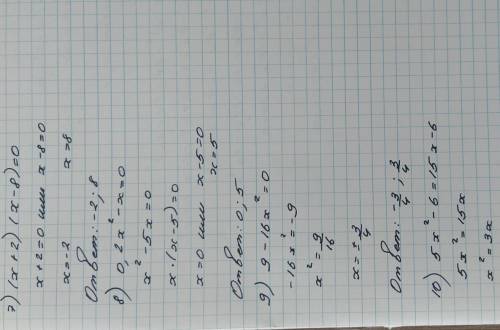 7) (x+2)(x-8)=0
x+2=0 или x-8=0
x=-2 x=8
Ответ: -2; 8
8) 0,2x²-x=0
x²-5x=0
x·(x-5)=0
x=0 или x-5=0
x=5
Ответ: 0; 5
9) 9-16x²=0
-16x²=-9
x²=9/16
x=±3/4
Ответ: -3/4; 3/4
10) 5x²-6=15x-6
5x²=15x
x²=3x